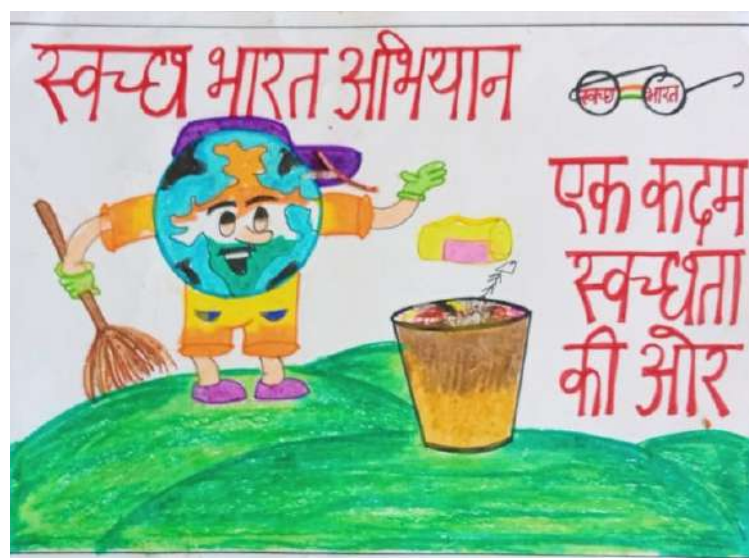 स्वच्छ भारत अभियान
स्वच्छ भारत
एक कदम
स्वच्छता
की ओर